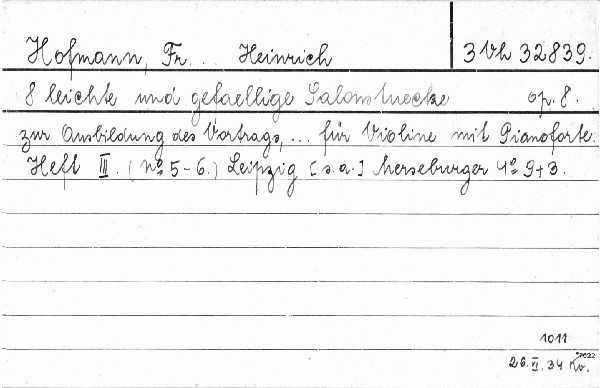 Hofmann, Fr... Heinrich 3 Vh 32839.
8 leichte und gefaellige Salonstuecke op. 8.
zur Ausbildung des Vortrags, ... für Violine mit Pianoforte.
Heft III. (No 5-6.) Leipzig [s.a.] Merseburger 4o 9+3.
1011
26. VI. 34 Kv.